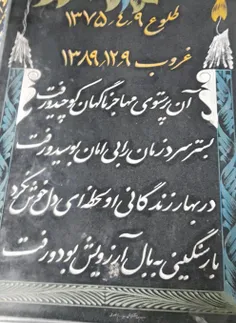 طلوع ۱۳۷۵٫۴٫۹
غروب ۱۳۸۹٫۱۲٫۹
آن پرستوی مهاجر ناگهان کوچید و رفت
بستر سرد زمان را بی امان بوسید و رفت
در بهار زندگانی او لحظه ای دل خوش نکرد
بار سنگینی به بال آرزویش بود و رفت